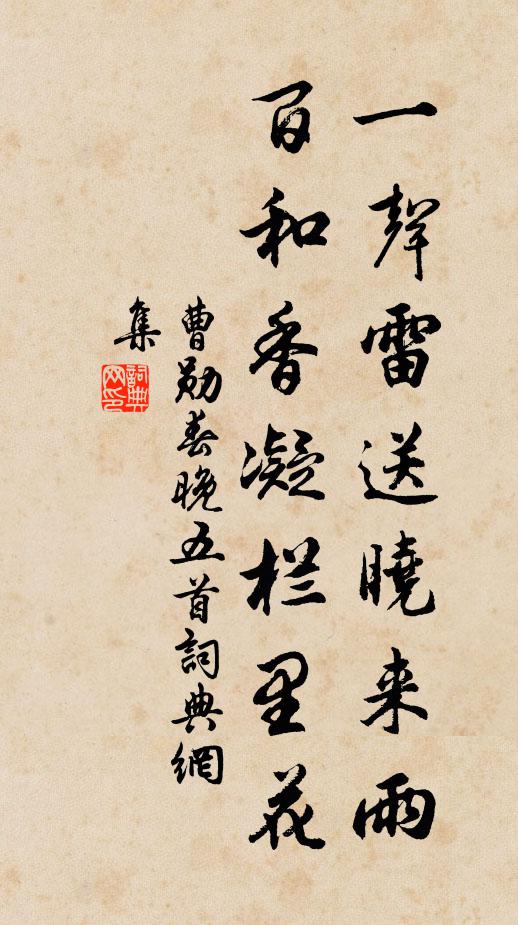 一聲雷送曉来雨
百和香凝栏里花
曹勋春晚五首詞典網
集
詞典
网印